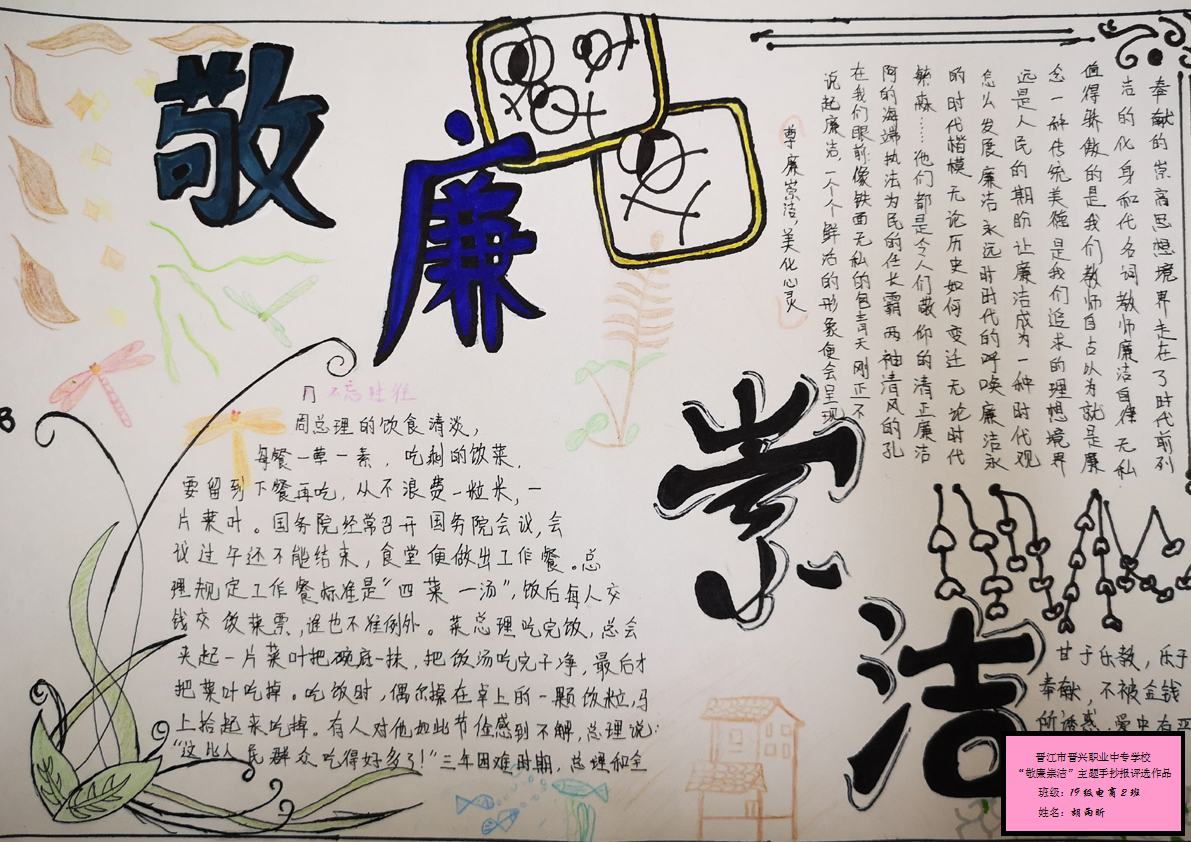 敬
廉
崇
洁
不忘过往
周总理的饮食清淡，
每餐一荤一素，吃剩的饭菜，
要留到下餐再吃，从不浪费一粒米，一
片菜叶。国务院经常召开国务院会议，会
议过午还不能结束，食堂便做出工作餐。总
理规定工作餐标准是“四菜一汤”，饭后每人交
钱交饭菜票，谁也不准例外。菜总理吃完饭，总会
夹起一片菜叶把碗底一抹，把饭汤吃完干净，最后才
把菜叶吃掉。吃饭时，偶尔掉在桌上的一颗饭粒，马
上拾起来吃掉。有人对他如此节俭感到不解，总理说：
“这比人民群众吃得好多了！”三年困难时期，总理和全
尊廉崇洁，美化心灵
说起廉洁，一个个鲜活的形象便会呈现
在我们眼前：像铁面无私的包青天刚正不
阿的海瑞执法为民的任长霞两袖清风的孔
繁森……他们都是令人们敬仰的清正廉洁
的时代楷模无论历史如何变迁无论时代
怎么发展廉洁永远时时代的呼唤廉洁永
远是人民的期盼让廉洁成为一种时代观
念一种传统美德是我们追求的理想境界
值得骄傲的是我们教师自古以为就是廉
洁的化身和代名词教师廉洁自律无私
奉献的崇高思想境界走在了时代前列
甘于乐教，乐于
奉献，不被金钱
所诱惑
晋江市晋兴职业中专学校
“敬廉崇洁”主题手抄报评选作品
班级：19级电商2班
姓名：胡雨昕